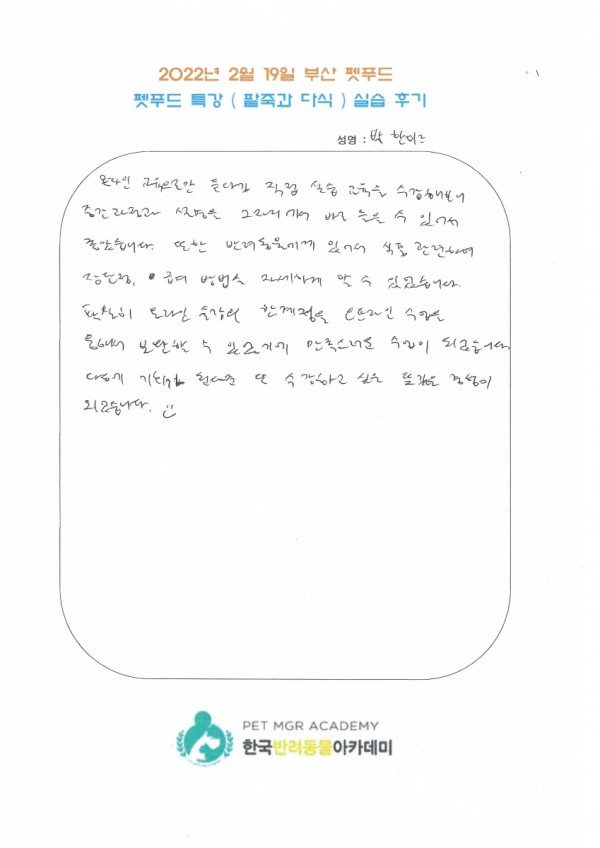 2022년 2월 19일 부산 펫푸드
펫푸드 특강 ( 팥죽과 다식 ) 실습 후기
성명 : 박한이
온라인 교육으로만 듣다가 직접 실습 교육을 수강해보니
중간과정과 설명을 그 자리에서 바로 들을 수 있어서
좋았습니다. 또한 반려동물에게 있어서 식품 관련하여
장단점, 급여 방법을 자세하게 알 수 있었습니다.
확실히 온라인 특강의 한계점을 오프라인 수업을
통해서 보완할 수 있었기에 만족스러운 수업이 되었습니다.
다음에 기회가 된다면 또 수강하고 싶은 뜻깊은 교육이
되었습니다.
PET MGR ACADEMY
한국반려동물아카데미